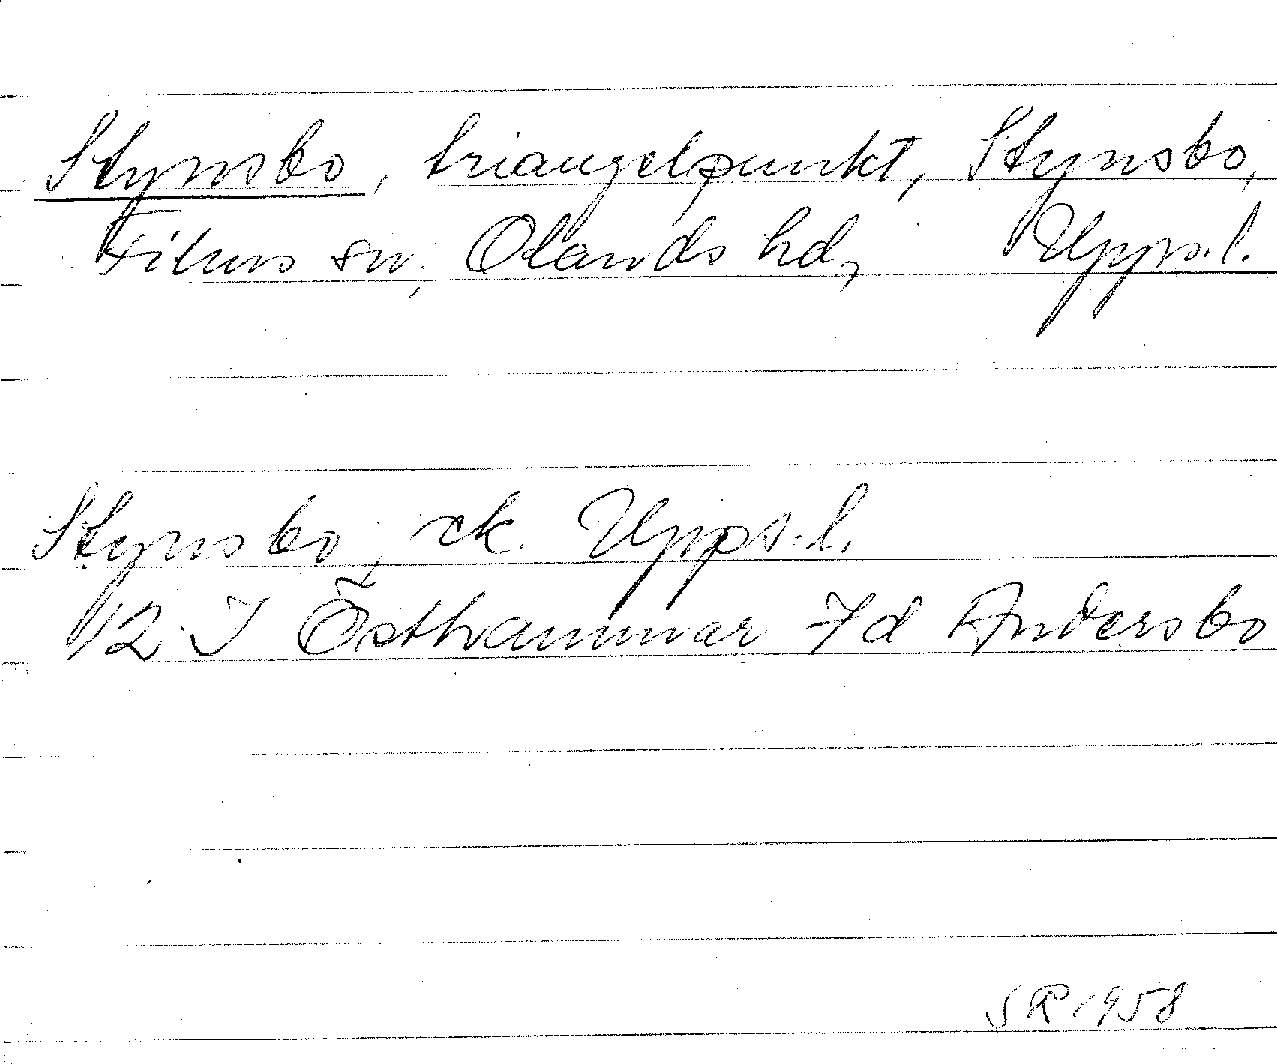 Stynsbo, triangelpunkt, Stynsbo,
Films sn, Olands hd, Upps.l.
Stynsbo, rk. Upps.l.
12 I Östhammar 7d Andersbo
SR 1958